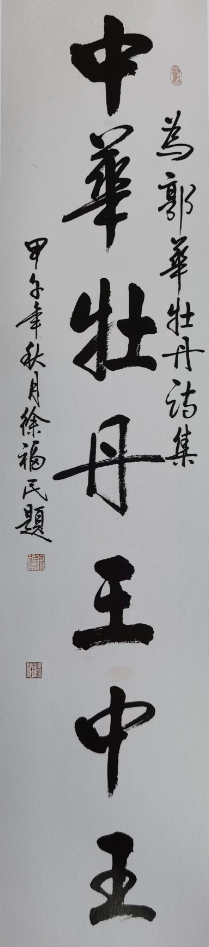 為郭華牡丹詩集
中華牡丹王中王
甲午年秋月徐福民題